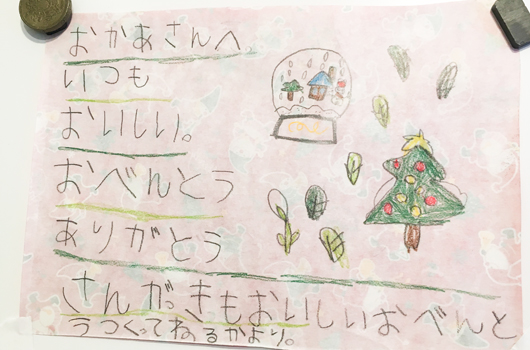 おかあさんへ。
いつも
おいしい。
おべんとう
ありがとう
さんがっきもおいしいおべんと
うつくってねるかより。